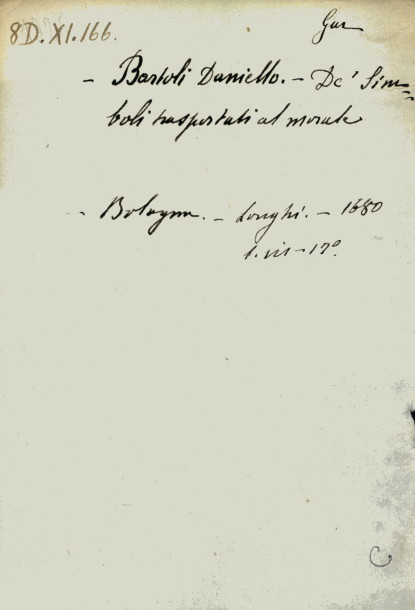 8D. XI. 166.
Gar
- Bartoli Daniello. - De' Sim=
boli trasportati al morale
- Bologna. - Longhi. - 1680
1. vol - 12°.